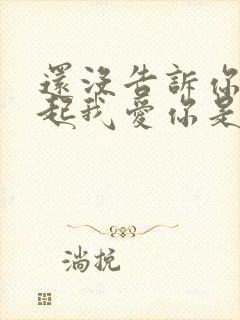 還沒告訴你
起我愛你是
淌抗